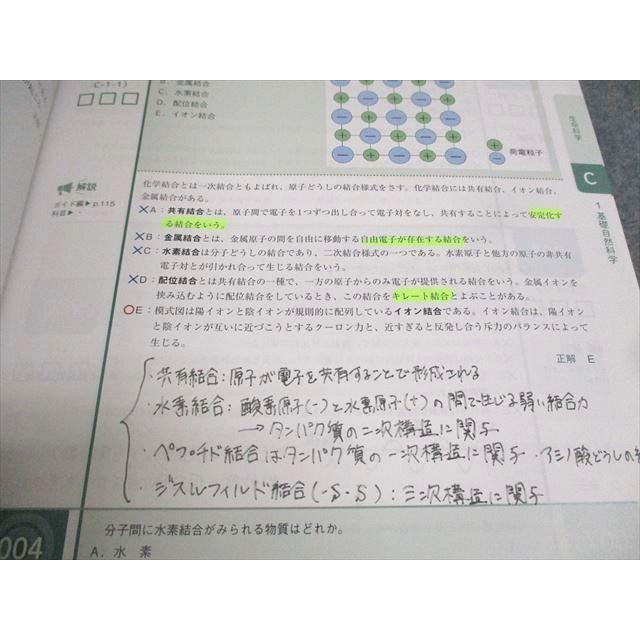 C-1-1)
B. 金属結合
C. 水素結合
D. 配位結合
E. イオン結合
荷電粒子
生命科学
C
1 基礎自然科学
解説
ガイド編▶p.115
科目▶
化学結合とは一次結合ともよばれ、原子どうしの結合様式をさす。化学結合には共有結合、イオン結合、
金属結合がある。
×A:共有結合とは、原子間で電子を1つずつ出し合って電子対をなし、共有することによって安定化す
る結合をいう。
×B:金属結合とは、金属原子の間を自由に移動する自由電子が存在する結合をいう。
×C:水素結合は分子どうしの結合であり、二次結合様式の一つである。水素原子と他方の原子の非共有
電子対とが引かれ合って生じる結合をいう。
×D:配位結合とは共有結合の一種で、一方の原子からのみ電子が提供される結合をいう。金属イオンを
挟み込むように配位結合をしているとき、この結合をキレート結合とよぶことがある。
○E:模式図は陽イオンと陰イオンが規則的に配列しているイオン結合である。イオン結合は、陽イオン
と陰イオンが互いに近づこうとするクーロン力と、近すぎると反発し合う斥力のバランスによって
生じる。
正解 E
・共有結合:原子が電子を共有することで形成される
・水素結合:酸素原子(-)と水素原子(+)の間で生じる弱い結合力
→タンパク質の二次構造に関与
・ペプチド結合はタンパク質の一次構造に関与・アミノ酸どうしの
・ジスルフィルド結合(-S・S):三次構造に関与
004
分子間に水素結合がみられる物質はどれか。
A. 水 素